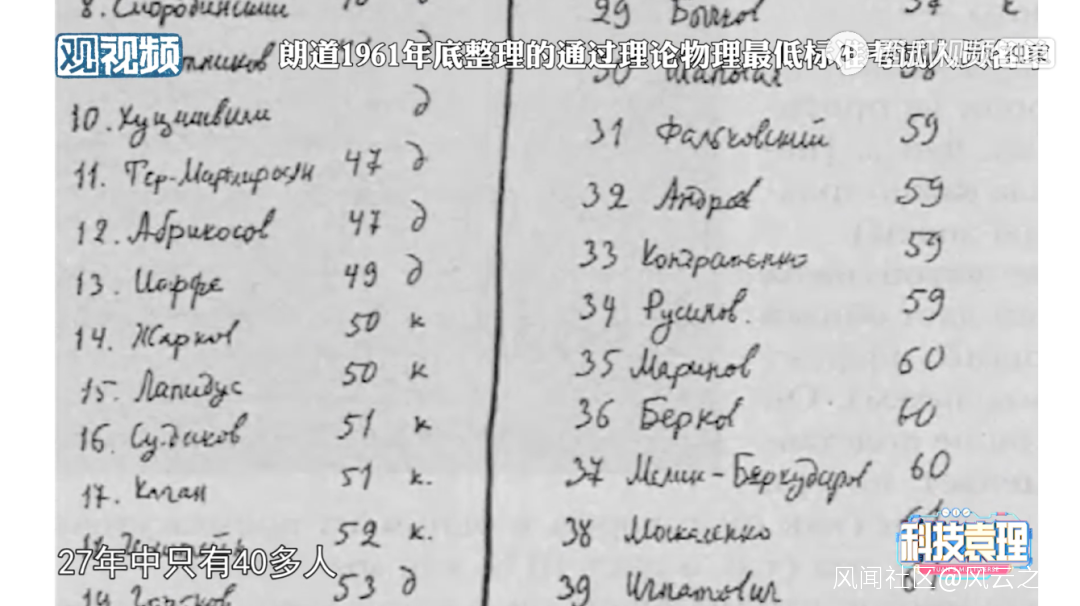 观视频
朗道1961年底整理的通过理论物理最低标准考试人员名单
8. Смородинский
10. Хуцишвили д
11. Тер-Мартиросян 47 д
12. Абрикосов 47 д
13 Иоффе 49 д
14. Жарков 50 к
15. Лапидус 50 к
16. Судаков 51 к
17. Каган 51 к.
52 к.
19. Горьков 53 д
29
31 Фальковский 59
32 Андреев 59
33 Кондратенко 59
34 Русинов. 59
35 Маринов 60
36 Берков 60
37 Мелик-Бархударов 60
38 Москаленко
39 Игнатович
27年中只有40多人
科技袁理
风闻社区@风云之